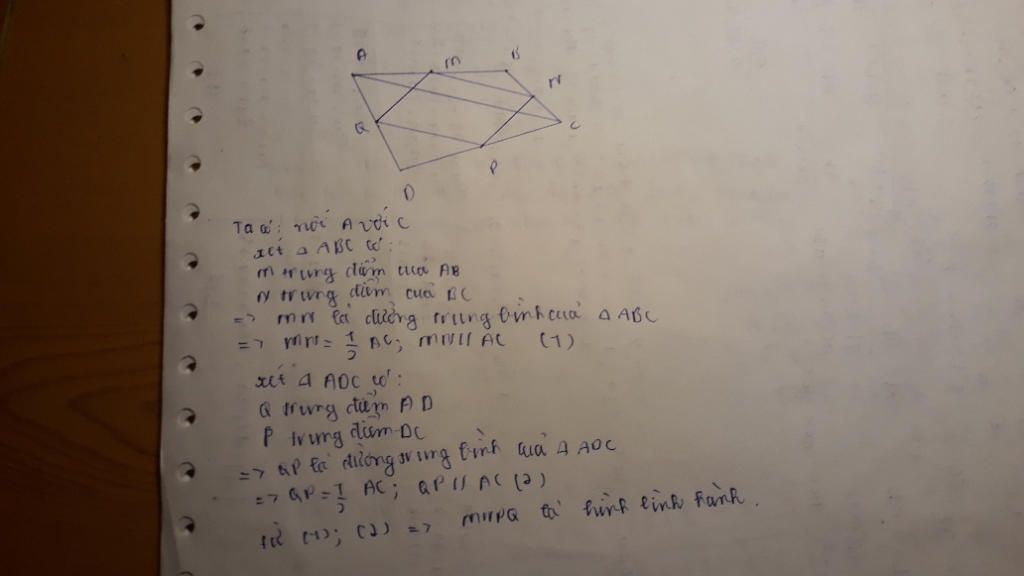 A M B
N
Q C
P
D
Ta có: nối A với C
xét Δ ABC có:
M trung điểm của AB
N trung điểm của BC
=> MN là đường trung bình của Δ ABC
=> MN = 1/2 AC; MN // AC (1)
xét Δ ADC có:
Q trung điểm AD
P trung điểm DC
=> QP là đường trung bình của Δ ADC
=> QP = 1/2 AC; QP // AC (2)
từ (1); (2) => MNPQ là hình bình hành.